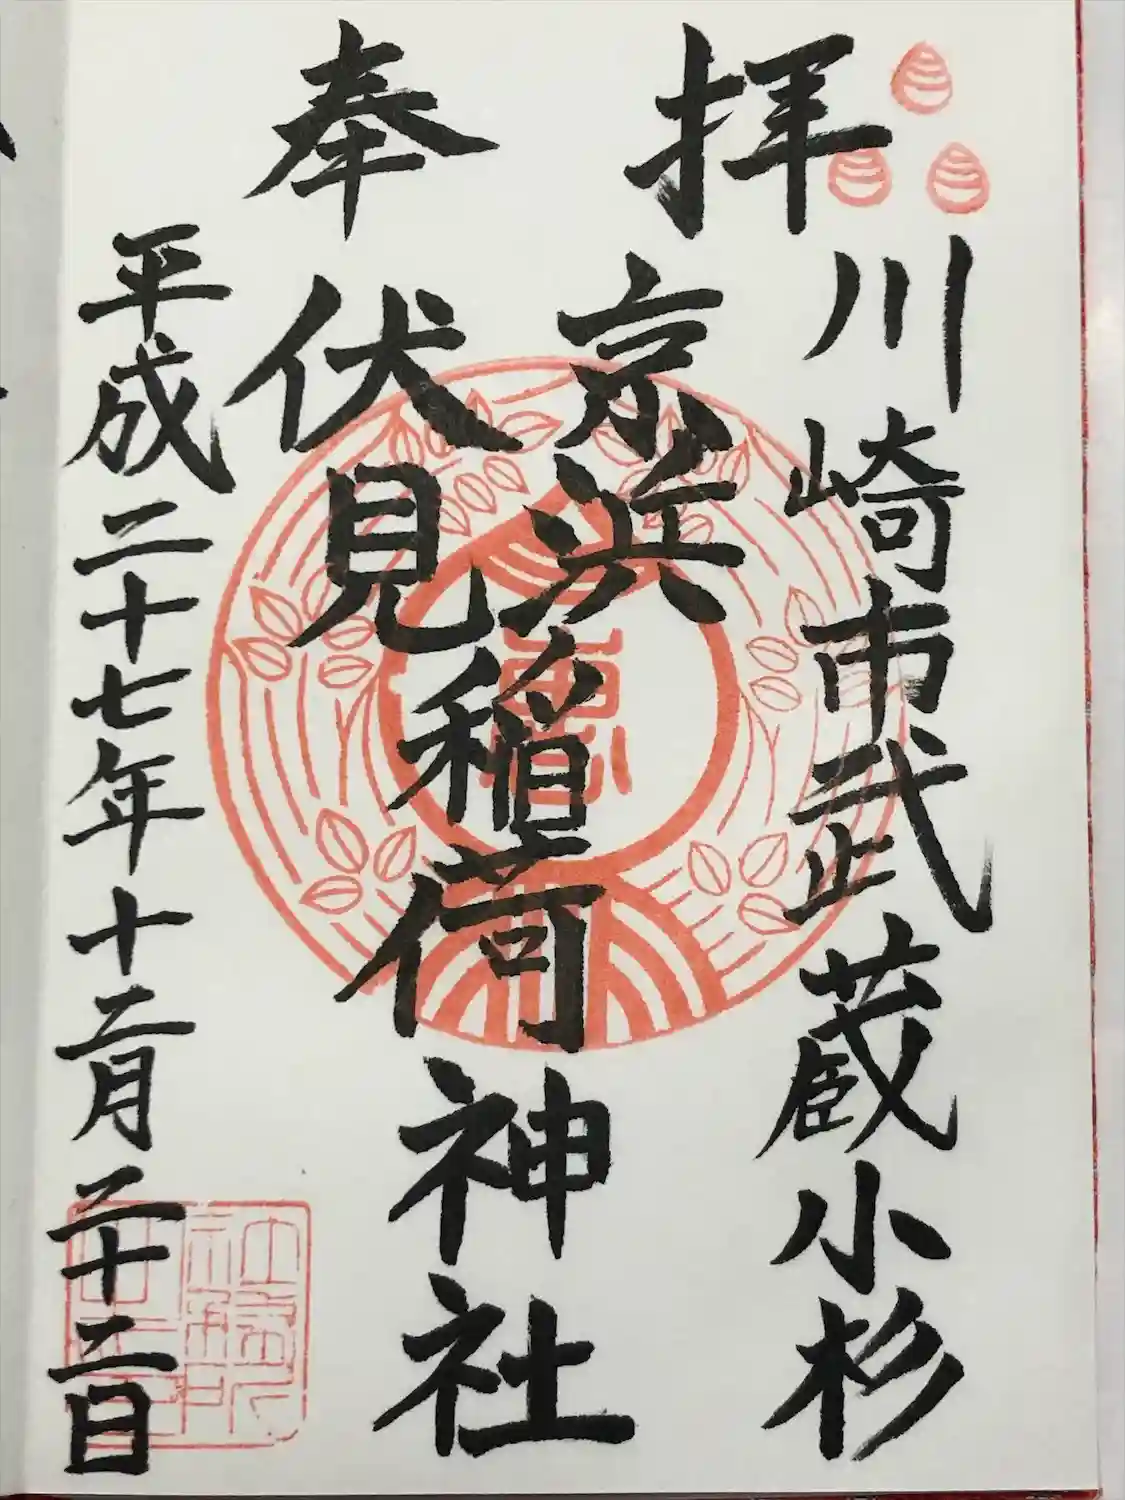 奉拝
川崎市武蔵小杉
京浜伏見稲荷神社
平成二十七年十二月二十二日